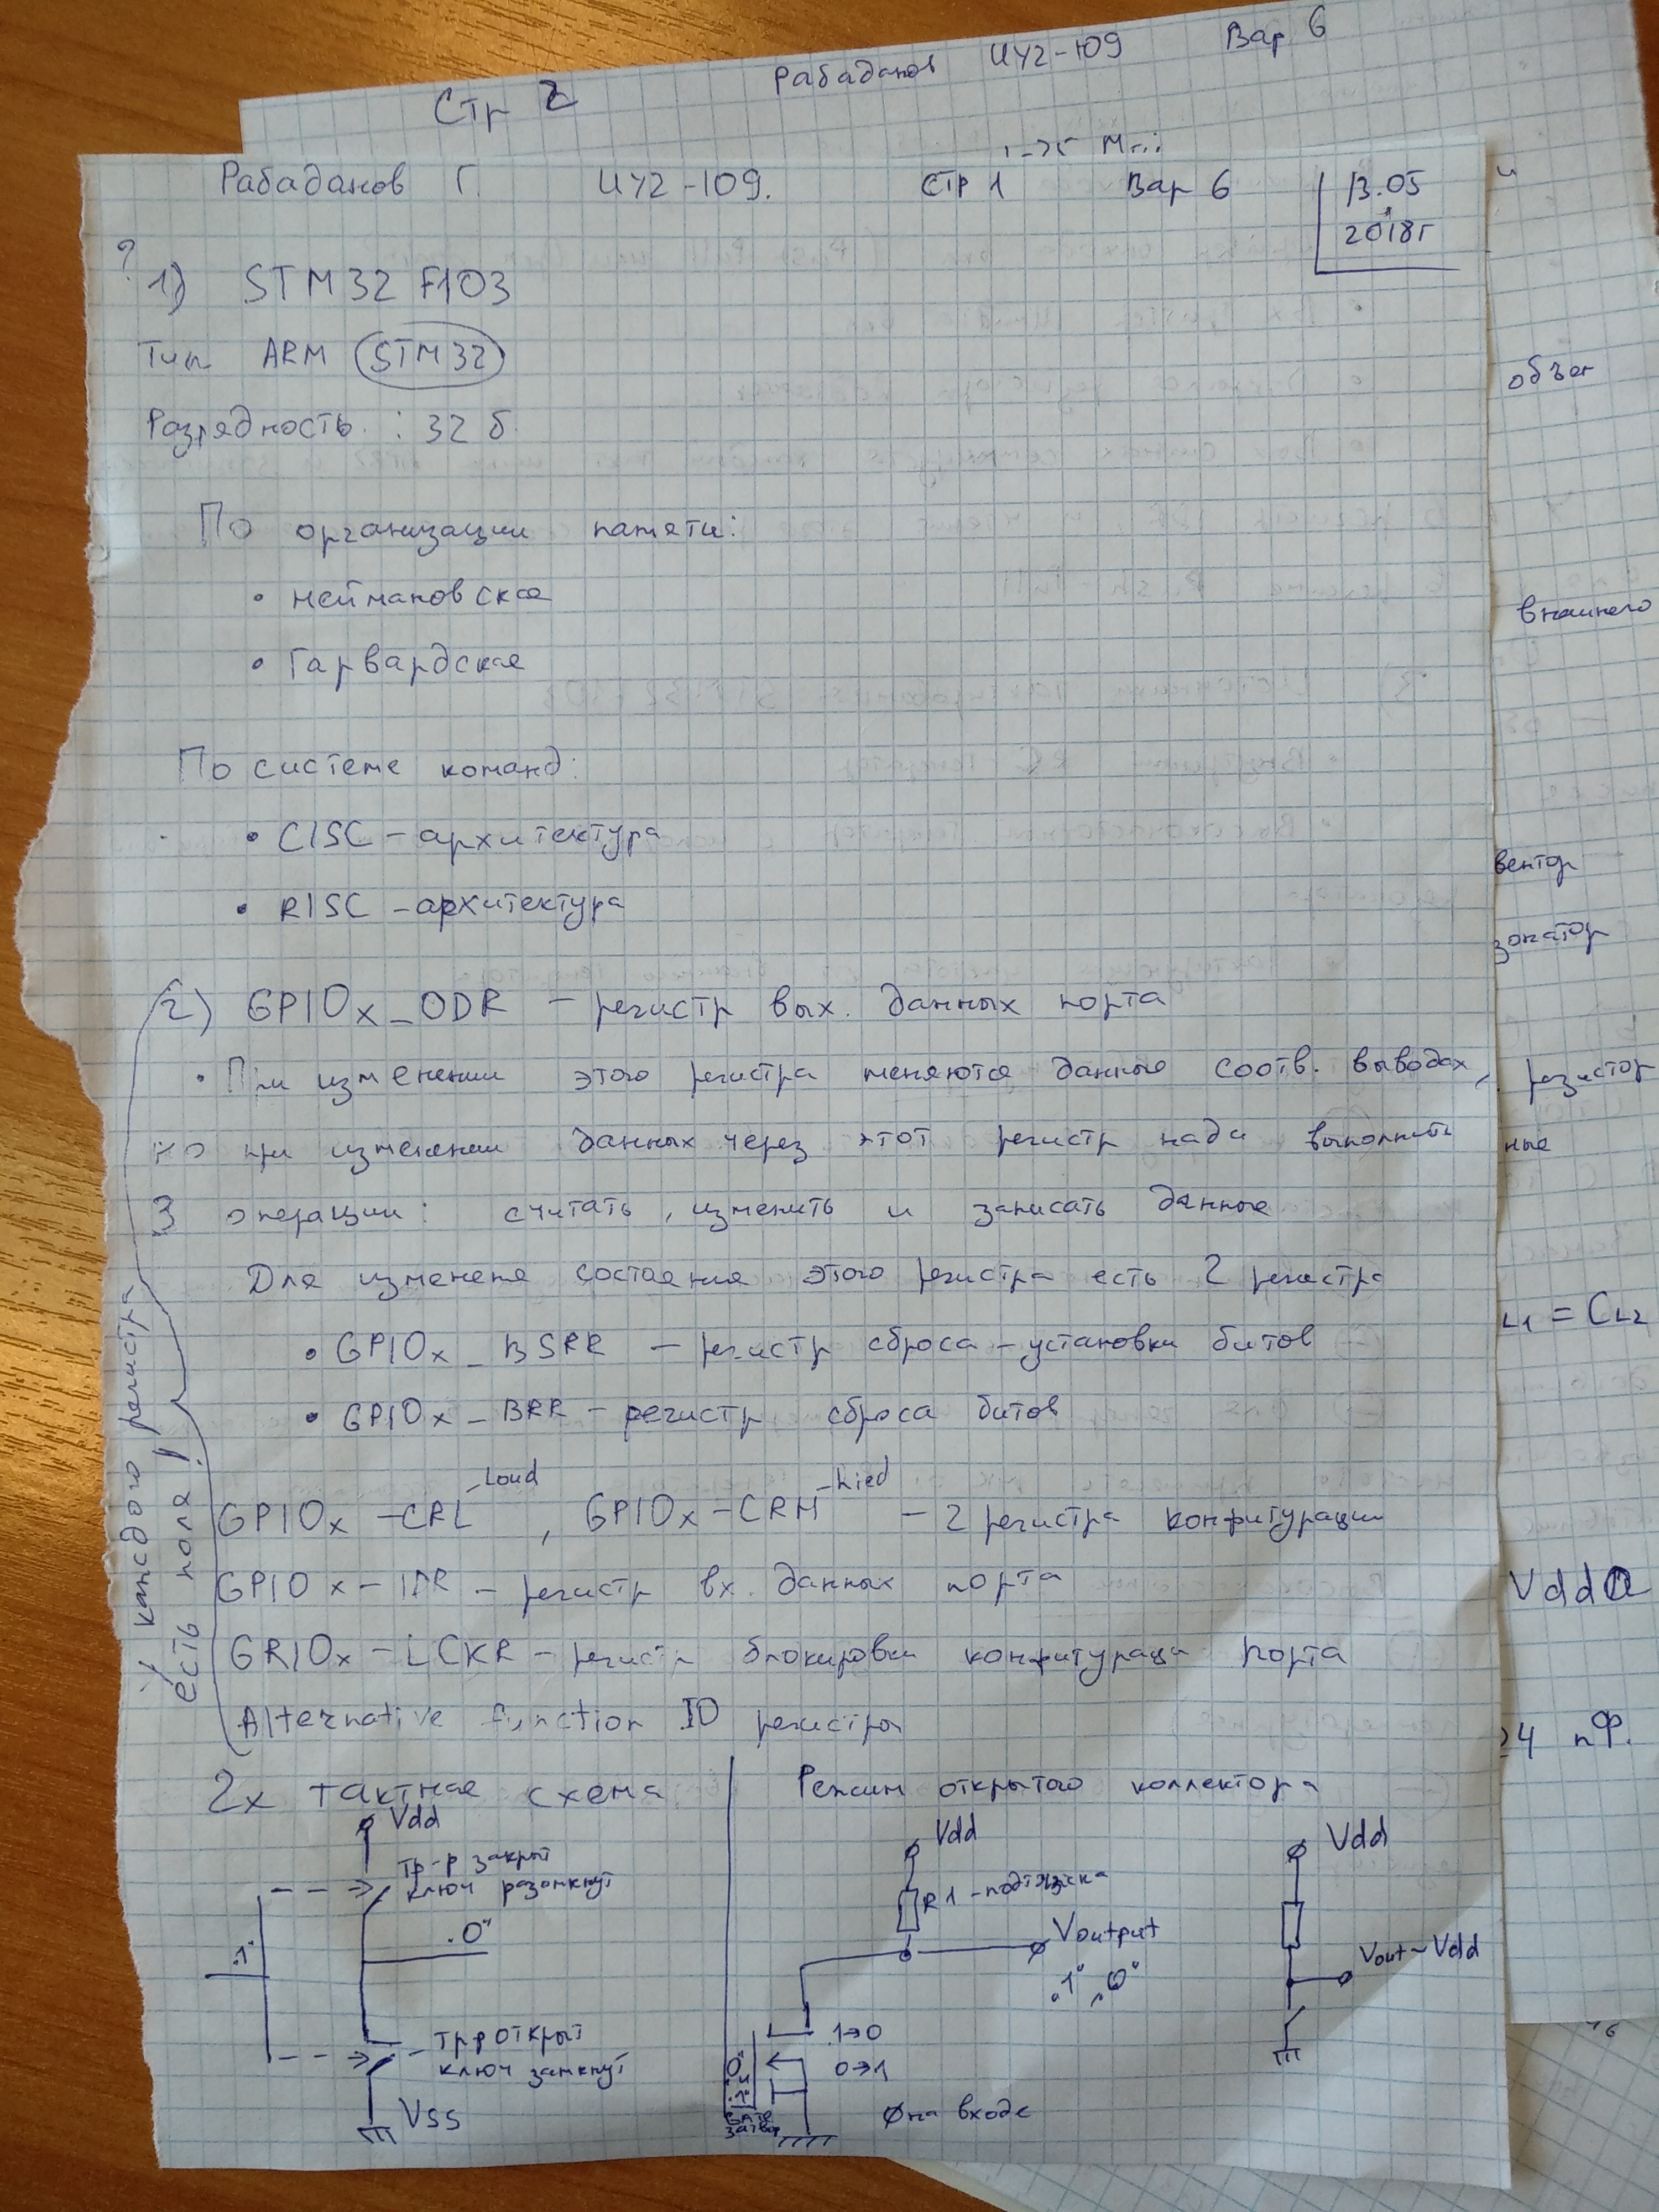 Стр 2 Рабаданов ИУ2-109 Вар 6
Рабаданов Г. ИУ2-109. Стр 1 Вар 6
13.05
2018г
?
1) STM32 F103
Тип ARM STM32
Разрядность : 32 б.
По организации памяти:
• неймановская
• Гарвардская
По системе команд:
• CISC - архитектура
• RISC - архитектура
2) GPIOx_ODR - регистр вых. данных порта
• При изменении этого регистра меняются данные соотв. выводах,
но при изменении данных через этот регистр надо выполнить
3 операции: считать, изменить и записать данные
Для изменения состояния этого регистра есть 2 регистра
• GPIOx_BSRR - регистр сброса - установки битов
• GPIOx_BRR - регистр сброса битов
GPIOx-CRL, GPIOx-CRH - 2 регистра конфигурации
GPIOx-IDR - регистр вх. данных порта
GRIOx-LCKR - регистр блокировки конфигураци порта
Alternative function IO регистры
У каждого регистра
есть поля!
2х тактная схема
Vdd
тр-р закрыт
ключ разомкнут
"1"
"0"
тр-р открыт
ключ замкнут
Vss
Режим открытого коллектора
Vdd
R1 - подтяжка
Voutput
"1" "0"
1→0
0→1
затвор
0 на входе
Vdd
Vout~Vdd
объег
внешнего
вентор
зонатор
резистор
ные
L1 = CL2
Vdda
24 пФ.